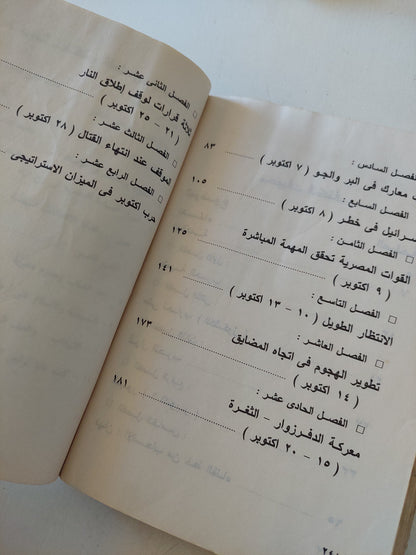 الفصل السادس :
معارك فى البر والجو ( ٧ اكتوبر ) ٨٣
الفصل السابع :
فى خطر ( ٨ اكتوبر ) ١٠٥
□ الفصل الثامن :
القوات المصرية تحقق المهمة المباشرة
( ٩ اكتوبر ) ١٢٥
□ الفصل التاسع :
الانتظار الطويل ( ١٠ – ١٣ اكتوبر ) ١٤١
□ الفصل العاشر :
تطوير الهجوم فى اتجاه المضايق
( ١٤ اكتوبر ) ١٧٣
□ الفصل الحادى عشر :
معركة الدفرزوار – الثغرة
( ١٥ – ٢٠ اكتوبر ) ١٨١
□ الفصل الثانى عشر :
ثلاثة قرارات لوقف إطلاق النار
( ٢١ – ٢٥ اكتوبر )
□ الفصل الثالث عشر :
الموقف عند انتهاء القتال ( ٢٨ اكتوبر )
□ الفصل الرابع عشر :
حرب اكتوبر فى الميزان الاستراتيجى